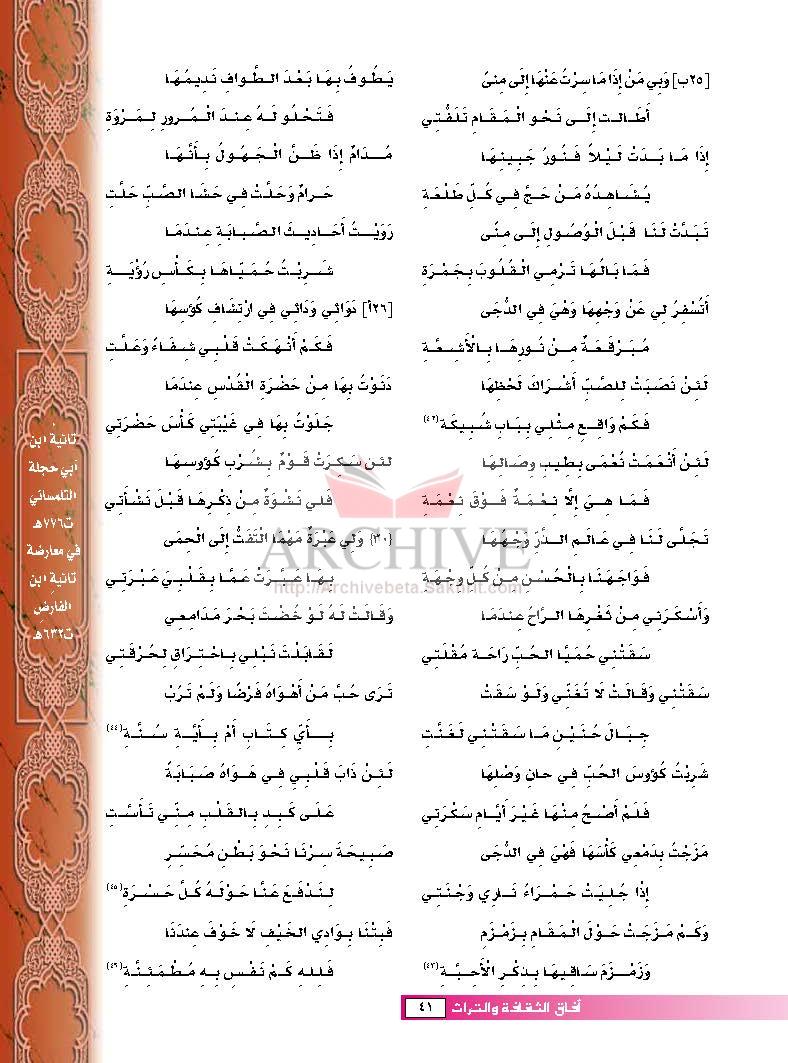 [٢٥ب] وَبِي مَنْ إِذَا مَا سِرْتُ عَنْهَا إِلَى مِنىً
أَطَالَت إِلَى نَحْوِ الْمَقَامِ تَلَفُّتِي
إِذَا مَا بَدَتْ لَيْلاً فَنُورُ جَبِينِهَا
يُشَاهِدُهُ مَنْ حَجَّ فِي كُلِّ طَلْعَةِ
تَبَدَّتْ لَنَا قَبْلَ الْوُصُولِ إِلَى مِنًى
فَمَا بَالُهَا تَرْمِي الْقُلُوبَ بِجَمْرَةِ
أَتُسْفِرُ لِي عَنْ وَجْهِهَا وَهْيَ فِي الدُّجَى
مُبَرْقَعَةٌ مِنْ نُورِهَا بِالْأَشِعَّةِ
لَئِنْ نَصَبَتْ لِلصَّبِّ أَشْرَاكَ لَحْظِهَا
فَكَمْ وَاقِعٍ مِثْلِي بِبَابِ شُبَيْكَةِ(٤٢)
لَئِنْ أَنْعَمَتْ نُعْمَى بِطِيبِ وِصَالِهَا
فَمَا هِيَ إِلَّا نِعْمَةٌ فَوْقَ نِعْمَةِ
تَجَلَّى لَنَا فِي عَالَمِ الذَّرِّ وَجْهُهَا
فَوَاجَهَنَا بِالْحُسْنِ مِنْ كُلِّ وِجْهَةِ
وَأَسْكَرَنِي مِنْ ثَغْرِهَا الرَّاحُ عِنْدَمَا
سَقَتْنِي حُمَيَّا الحُبِّ رَاحَةَ مُقْلَتِي
سَقَتْنِي وَقَالَتْ لَا تُغَنِّي وَلَوْ سَقَتْ
جِبَالَ حُنَيْنٍ مَا سَقَتْنِي لَغَنَّتِ
شَرِبْتُ كُؤُوسَ الحُبِّ فِي حَانِ وَصْلِهَا
فَلَمْ أَصْحُ مِنْهَا غَيْرَ أَيَّامِ سَكْرَتِي
مَزَجْتُ بِدَمْعِي كَأْسَهَا فَهْيَ فِي الدُّجَى
إِذَا جُلِيَتْ حَمْرَاءُ نَارِي وَجْنَتِي
وَكَمْ مَزَجَتْ حَوْلَ الْمَقَامِ بِزَمْزَمٍ
وَزَمْزَمَ سَاقِيهَا بِذِكْرِ الْأَحِبَّةِ(٤٣)
يَطُوفُ بِهَا بَعْدَ الطَّوَافِ نَدِيمُهَا
فَتَحْلُو لَهُ عِنْدَ الْمُرورِ لِمَرْوَةِ
مُدَامٌ إِذَا ظَنَّ الْجَهُولُ بِأَنَّهَا
حَرامٌ وَحَلَّتْ فِي حَشَا الصَّبِّ حَلَّتِ
رَوَيْتُ أَحَادِيثَ الصَّبَابَةِ عِنْدَمَا
شَرِبْتُ حُمَيَّاهَا بِكَأْسِ رُؤْيَةِ
[٢٦أ] دَوَائِي وَدَائِي فِي ارْتِشَافِ كُؤسِهَا
فَكَمْ أَنْهَكَتْ قَلْبِي شِفَاءً وَعَلَّتِ
دَنَوْتُ بِهَا مِنْ حَضْرَةِ الْقُدْسِ عِنْدَمَا
جَلَوْتُ بِهَا فِي غَيْبَتِي كَأْسَ حَضْرَتِي
لَئِن سَكِرَتْ قَوْمٌ بِشُرْبِ كُؤوسِهَا
فَلِي نَشْوَةٌ مِنْ ذِكْرِهَا قَبْلَ نَشْأَتِي
{٣٠} وَلِي عَبْرَةٌ مَهْمَا الْتَفَتُّ إِلَى الْحِمَى
بِهَا عَبَّرَتْ عَمَّا بِقَلْبِيَ عَبْرَتِي
وَقَالَتْ لَهُ لَوْ خُضْتَ بَحْرَ مَدَامِعِي
لَقَابَلْتَ نَبْلِي بِاحْتِرَاقٍ لِحُرْقَتِي
تَرَى حُبَّ مَنْ أَهْوَاهُ فَرْضًا وَلَمْ تَرُبْ
بِأَيِّ كِتَابٍ أَمْ بِأَيَّةِ سُنَّةِ(٤٤)
لَئِنْ ذَابَ قَلْبِي فِي هَوَاهُ صَبَابَةً
عَلَى كَبِدٍ بِالقَلْبِ مِنِّي تَأَسَّتِ
صَبِيحَةَ سِرْنَا نَحْوَ بَطْنِ مُحَسِّرٍ
لِنَدْفَعَ عَنَّا حَوْلَهُ كُلَّ حَسْرَةِ(٤٥)
فَبِتْنَا بِوَادِي الخَيْفِ لَا خَوْفَ عِنْدَنَا
فَلِلهِ كَمْ نَفْسٍ بِهِ مُطْمَئِنَّةِ(٤٦)
تائية ابن
أبي حجلة
التلمساني
ت٧٧٦هـ
في معارضة
تائية ابن
الفارض
ت٦٣٢هـ
ARCHIVE
http://Archivebeta.Sakhrit.com
آفاق الثقافة والتراث ٤١